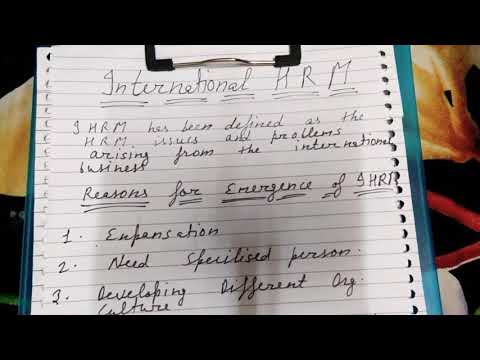 International HRM
IHRM has been defined as the
HRM issues and problems
arising from the international
business
Reasons for Emergence of IHRM
1. Expansation
2. Need Specilised person.
3. Developing Different Org.
Culture